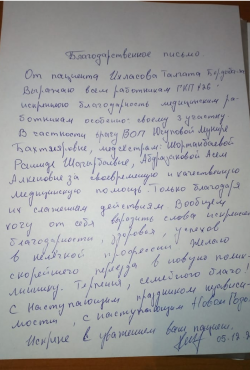 Благодарственное письмо.
От пациента Ихласова Талгата
Выражаю всем работникам ГКП
искреннюю благодарность медицинским ра-
ботникам особенно своему 3 участку
В частности врачу ВОП Юсуповой
Бахтияровне, медсёстрам:
Абдразаковой Асем
за своевременную и качественную
медицинскую помощь. Только благодаря
их слаженным действиям Вообщем
хочу от себя выразить слова искренней
благодарности, здоровья, успехов
в нелёгкой профессии желаю
скорейшего переезда в новую поли-
клинику. Терпения, семейного благо!
С наступающим праздником независи-
мости, с наступающим Новом Годом.
Искрине с уважением ваш пациент.
05.12